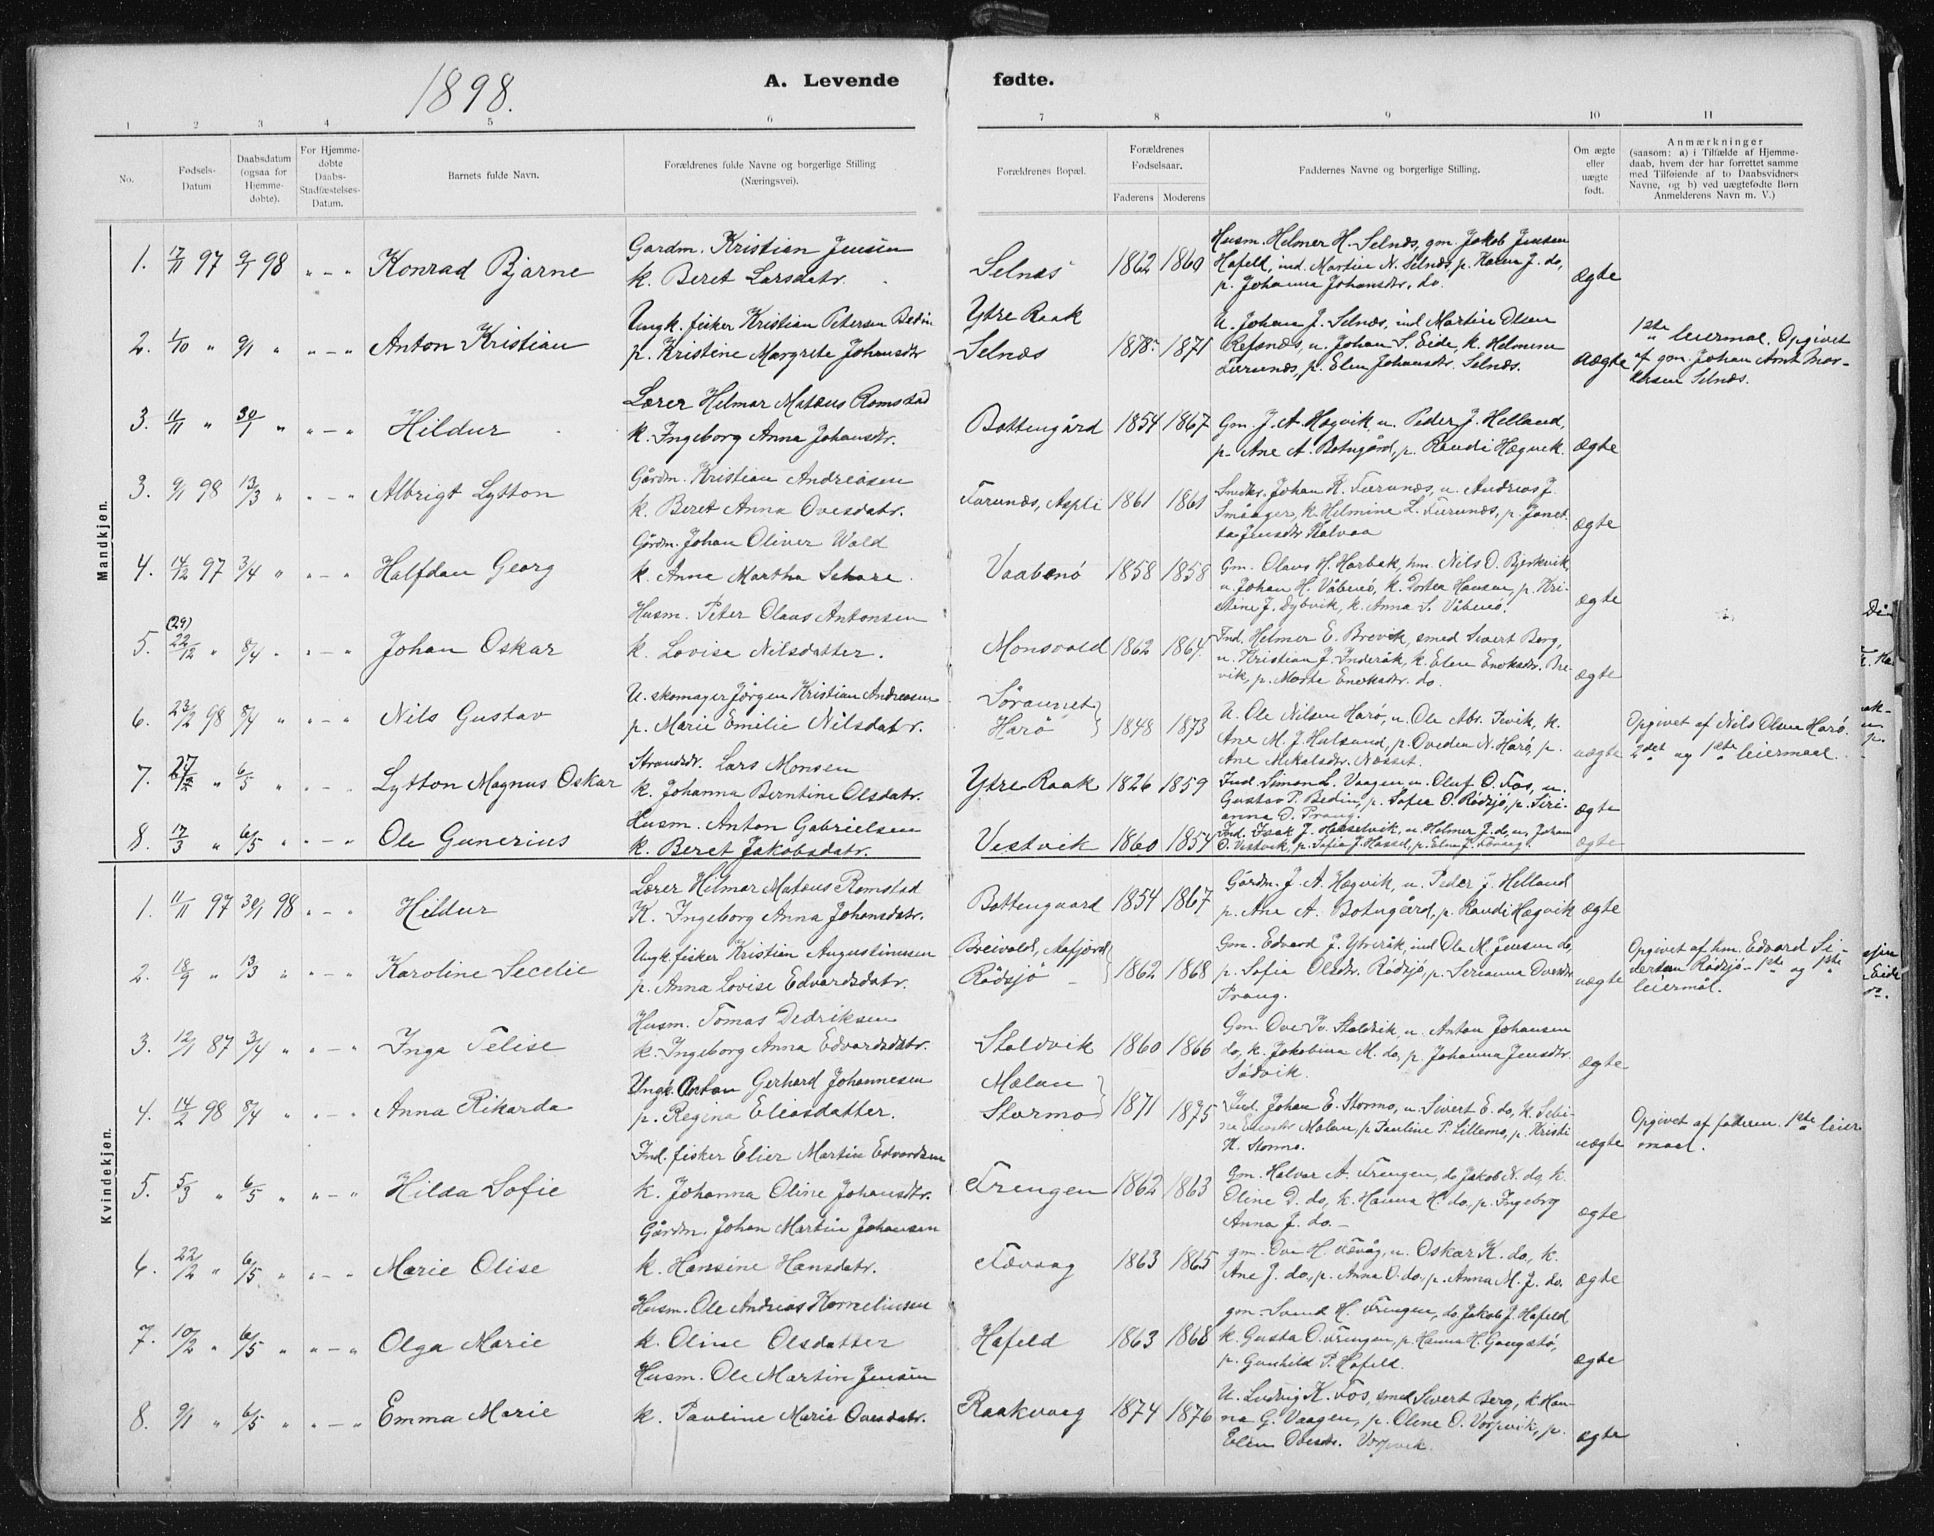 1898.
A. Levende fødte.
1 2 3 4 5 6 7 8 9 10 11
No. Fødsels-Datum Daabsdatum (ogsaa for Hjemme-døbte). For Hjemme-døbte Daabs-Stadfæstelses-Datum. Barnets fulde Navn. Forældrenes fulde Navne og borgerlige Stilling (Næringsvei). Forældrenes Bopæl. Forældrenes Fødselsaar. Faderens Moderens Faddernes Navne og borgerlige Stilling. Om ægte eller uægte født. Anmærkninger (saasom: a) i Tilfælde af Hjemme-daab, hvem der har forrettet samme med Tilføiende af to Daabsvidners Navne, og b) ved uægtefødte Børn Anmelderens Navn m. V.)
Mandkjøn.
1. 17/11 97 9/1 98 " - " Konrad Bjarne Gardm. Kristian Jensen k. Beret Larsdatr. Selnæs 1862 1860 Husm. Helmer H. Selnæs, gm. Jakob Jensen Hafeld, ind. Martin N. Selnæs, p. Hanna J. do, p. Johanna Johansdtr. do. ægte
2. 1/10 " 9/1 " " - " Anton Kristian Ungk. fisker Kristian Petersen Bedin p. Kristine Margrete Johansdtr Ytre Raak Selnæs 1875 1871 U. Johan J. Selnæs, ind Martin Olsen Refsnæs, u. Johan S. Eide, k. Helmine Færunæs, p. Elen Johansdtr. Selnæs. uægte 1ste leiermal. Opgivet af gm. Johan Arnt Mor-tensen Selnæs.
3. 11/11 " 30/1 " " - " Hildur Lærer Helmar Matæus Romstad k. Ingeborg Anna Johansdtr. Bottengård 1854 1867 Gm. J. A. Hægvik, u. Peder J. Helland, p. Ane A. Botngård, p. Randi Hægvik. ægte
3. 9/1 98 13/3 " " - " Albrigt Lytton Gårdm. Kristian Andreasen k. Beret Anna Ovesdatr. Færunæs, Aspli 1861 1861 Snedkr. Johan K. Færunæs, u. Andreas J. Småager, k. Helmine L. Færunæs, p. Janet-ta Jensdtr Kalvaa ægte
4. 14/12 97 3/4 " " - " Halfdan Georg Gårdm. Johan Oliver Wold k. Anne Martha Schare Vaabenø 1858 1858 Gm. Olaus H. Harbak, hm. Nils O. Bjerkvik u. Johan H. Våbenø, k. Dortea Hansen, p. Kri-stine J. Dybvik, k. Anna S. Våbenø. ægte
5. (29) 22/12 " 8/4 " " - " Johan Oskar Husm. Peter Olaus Antonsen k. Lovise Nilsdatter. Monsvold 1862 1864. Ind. Helmer E. Brevik, smed Sivert Berg, u. Kristian J. Inderåk, k. Elen Enoksdtr. Bre-vik, p. Marte Enoksdtr. do. ægte
6. 23/2 98 8/4 " " - " Nils Gustav U. skomager Jørgen Kristian Andreasen p. Marie Emilie Nilsdatr. Søraunet Harø } 1848 1873 U. Ole Nilsen Harø, u. Ole Abr. Tevik, k. Ane M. J. Hulsund, p. Ovedia N. Harø, p. Ane Mikalsdtr. Næsset. uægte Opgivet af Nils Olsen Harø. 2det og 1ste leiermaal.
7. 27/12 " 6/5 " - " Lytton Magnus Oskar Strandsdr. Lars Monsen k. Johanna Berntine Olsdatr. Ytre Raak 1826 1859 Ind. Simon L. Vaagen, u. Oluf O. Fos, u. Gustav P. Bedin, p. Sofie O. Rødsjø, p. Seri-anna O. Prang. ægte
8. 17/3 " 6/5 " - " Ole Gunerius Husm. Anton Gabrielsen k. Beret Jakobsdatr. Vestvik 1860 1854 Ind. Isak J. Hasselvik, u. Helmer J. do, u. Johan O. Vestvik, p. Sofia J. Hassel, p. Elen K. Fævaag. ægte
Kvindekjøn.
1. 11/11 97 30/1 98 " - " Hildur Lærer Hilmar Matæus Romstad K. Ingeborg Anna Johansdatr. Bottengaard 1854 1867 Gårdm. J. A. Hægvik, u. Peder J. Helland p. Ane A. Botngård, p. Randi Hægvik ægte
2. 18/9 " 13/3 " " - " Karoline Secelie Ungk. fisker Kristian Augustinussen p. Anna Lovise Edvardsdatr. Breivold, Aafjord Rødsjø } 1862 1868 Gm. Edvard J. Ytreråk, ind Ole M. Jensen do, p. Sofia Olsdtr. Rødsjø, p. Serianna Ovesdtr Prang. uægte Opgivet af hm. Edvard Si-vertsen Rødsjø - 1ste og 1ste leiermål.
3. 12/1 87 3/4 " " - " Inga Telise Husm. Tomas Dedriksen k. Ingeborg Anna Edvardsdatr. Staldvik 1860 1866 Gm. Ove Tv. Staldvik, u. Anton Johansen do, k. Jakobina M. do, p. Johanna Jensdtr. Sødvik. ægte
4. 14/2 98 8/4 " " - " Anna Rikarda Ungk. Anton Gerhard Johannesen p. Regina Eliasdatter. Mælan Stormo } 1871 1875 Ind. Johan E. Stormo, u. Sivert E. do, k. Sebi-ne Mælan, p. Pauline P. Lillemo, p. Kristi H. Stormo. uægte Opgivet af faderen. 1ste leier-maal.
5. 5/3 " 6/5 " " - " Hilda Sofie Ind. fisker Elier Martin Edvardsen k. Johanna Oline Johansdtr. Frengen 1862 1863 Gm. Halvar A. Frengen, do Jakob N. do, k. Oline D. do, k. Hanna H. do, p. Ingeborg Anna J. do. - ægte
6. 22/2 " 6/5 " " - " Marie Olise Gårdm. Johan Martin Johansen k. Hansine Hansdatr. Fævaag 1863 1865 gm. Ove H. Fævåg, u. Oskar K. do, k. Ane J. do, p. Anna O. do, p. Anna M. J. do. ægte
7. 10/2 " 6/5 " " - " Olga Marie Husm. Ole Andreas Korneliussen k. Oline Olsdatter Hafeld 1863 1868 gm. Svend H. Frengen, do, Jakob J. Hafeld k. Gusta O. Frengen, p. Hanna H. Gangstø, p. Gunhild P. Hafeld. ægte
8. 9/1 " 6/5 " " - " Emma Marie Husm. Ole Martin Jensen k. Pauline Marie Ovesdatr. Raakvaag 1874 1876 U. Ludvig K. Fos, smed Sivert Berg, k. Han-na G. Vaagen, p. Oline O. Vorpvik, p. Elen Ovesdtr. Vorpvik. ægte